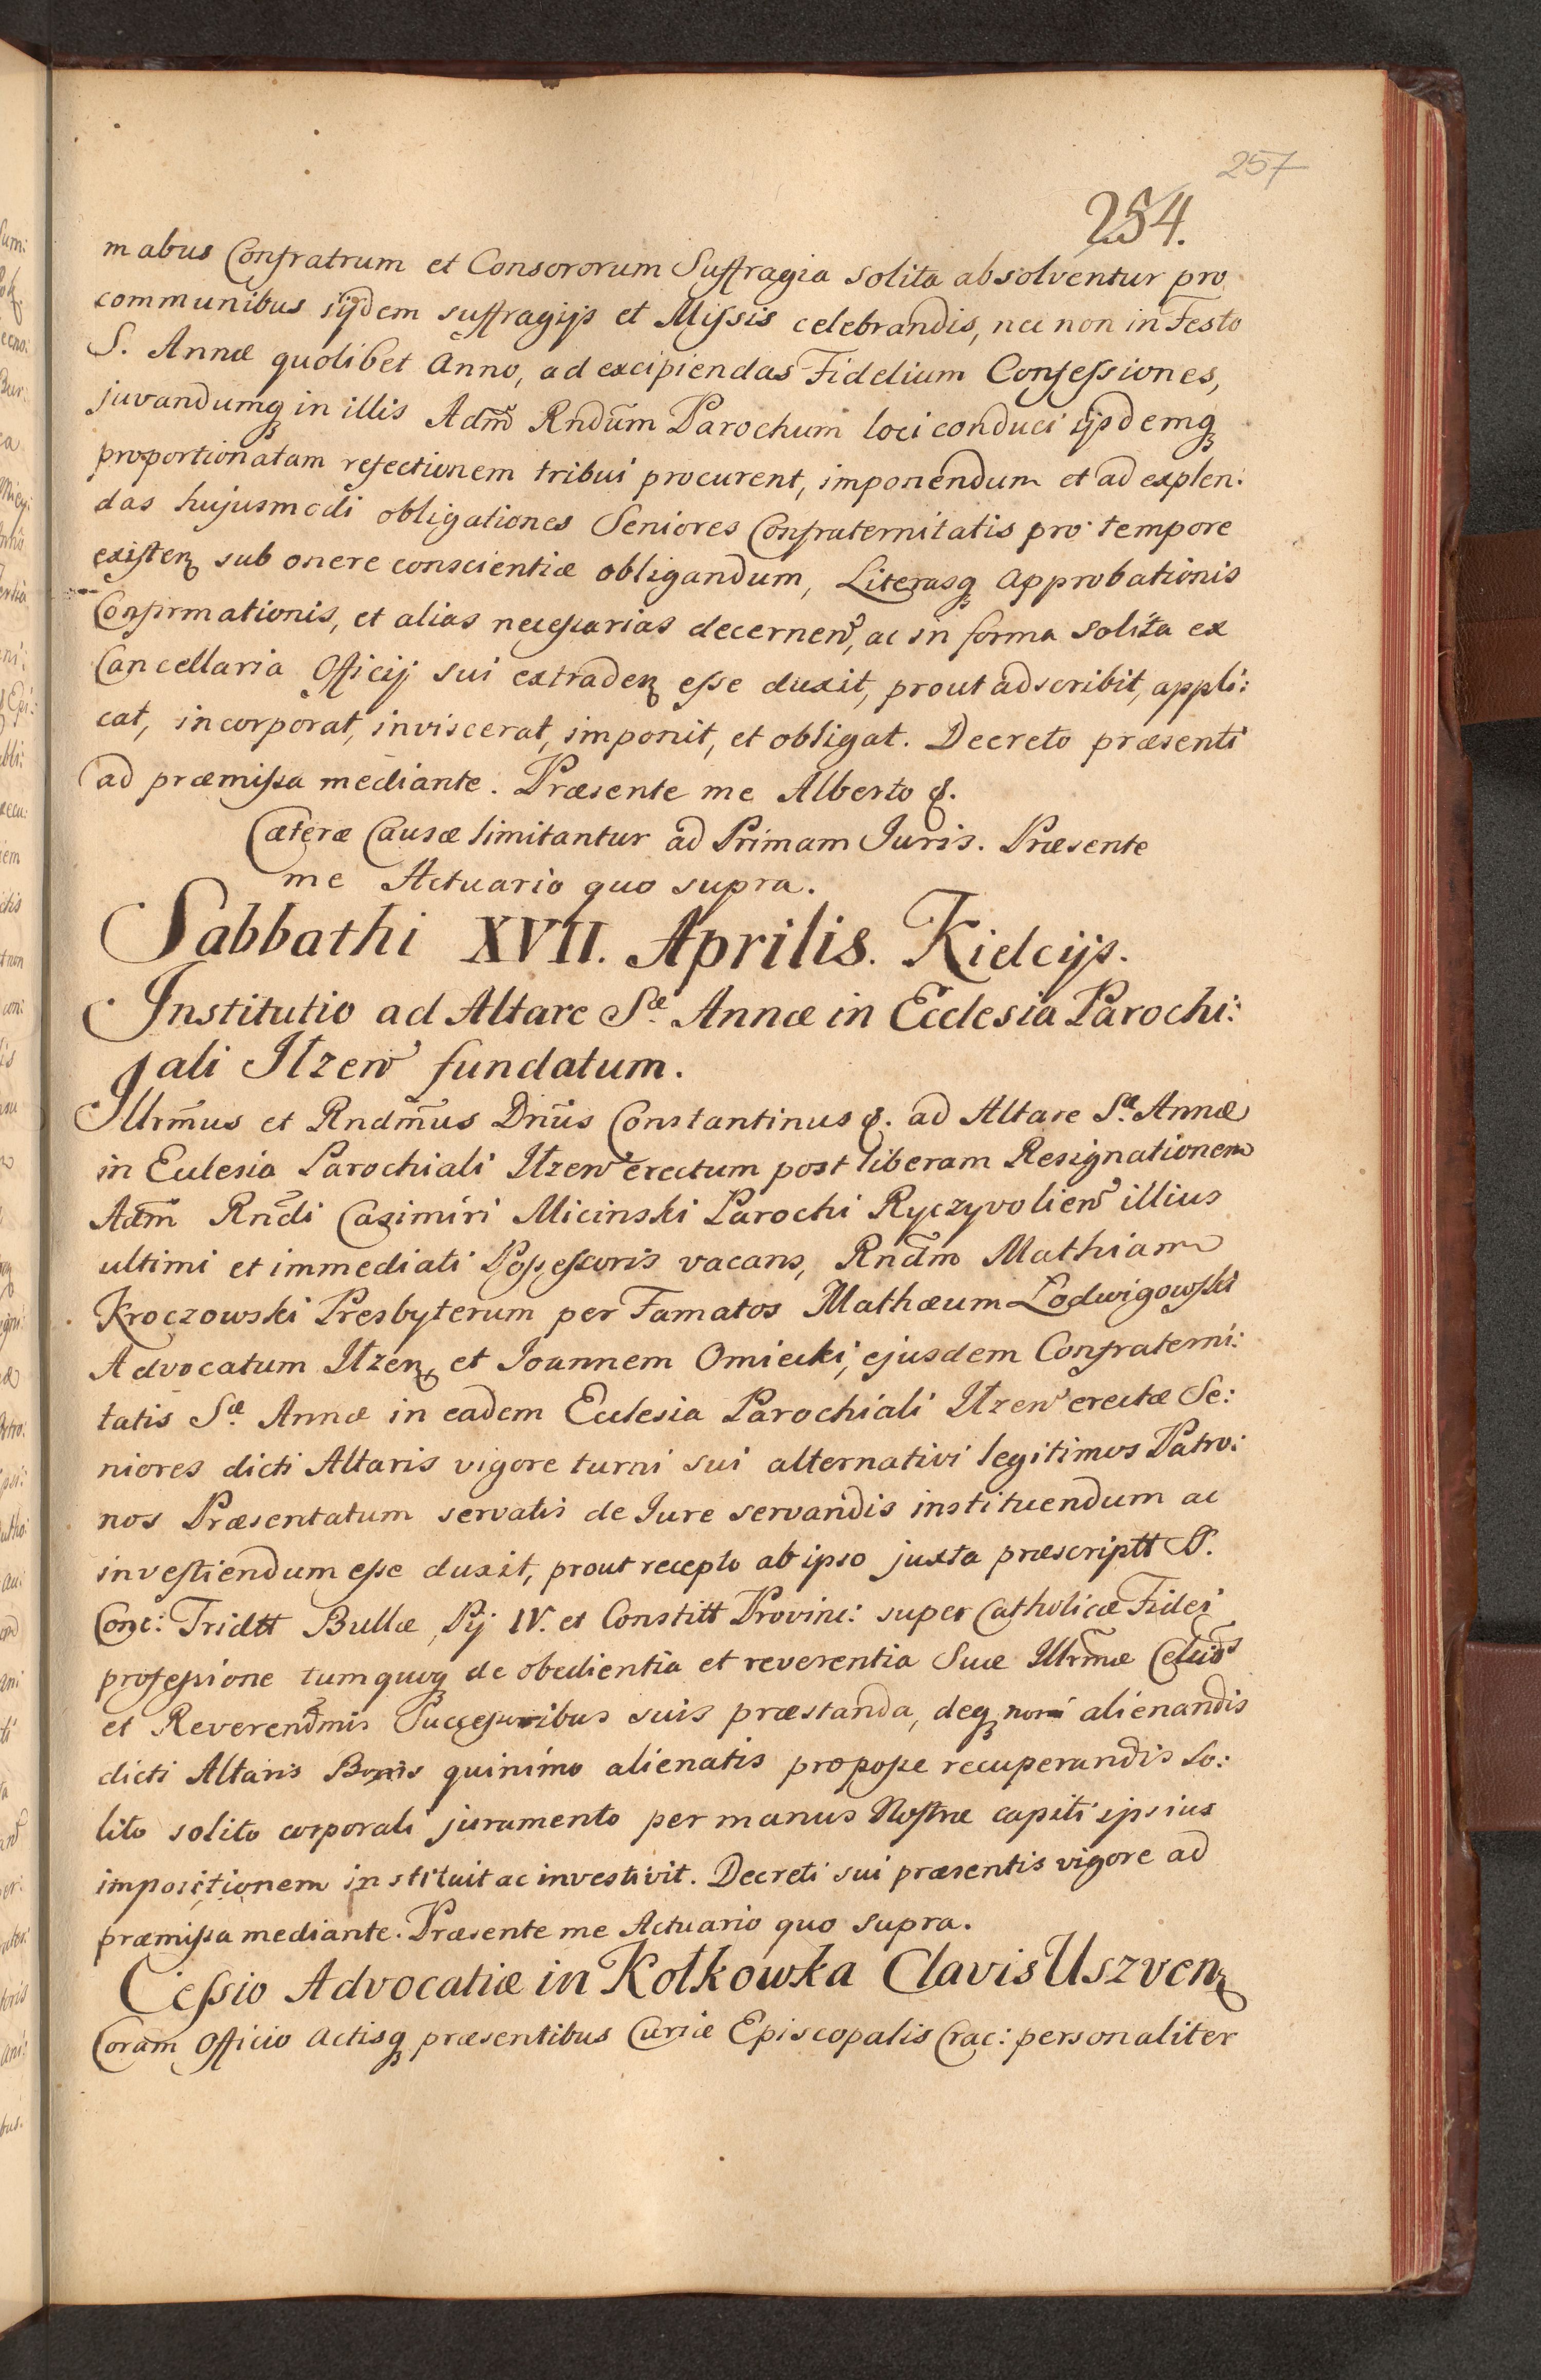 257
254.
mabus Confratrum et Consororum Suffragia solita absolventur pro
communibus iijdem suffragijs et Missis celebrandis, nec non in Festo
S. Annæ quolibet Anno, ad excipiendas Fidelium Confessiones,
juvandumq́ in illis Adm̃ Rndũm Parochum loci conduci ijsdemq́
proportionatam refectionem tribui procurent, imponendum et ad explen:
das hujusmodi obligationes Seniores Confraternitatis pro tempore
existen̨ sub onere conscientiæ obligandum, Literasq́ Approbationis
Confirmationis, et alias necessarias decernen̄, ac in forma solita ex
Cancellaria Officij sui extraden̨ esse duxit, prout adscribit, appli:
cat, incorporat, inviscerat, imponit, et obligat. Decreto præsenti
ad præmissa mediante. Præsente me Alberto &.
Cæteræ Causæ limitantur ad Primam Juris. Præsente
me Actuario quo supra.
Sabbathi XVII. Aprilis. Kielcijs.
Institutio ad Altare Sæ Annæ in Ecclesia Parochi:
jali Ilzen̄ fundatum.
Illrm̃us et Rndm̃us Dnũs Constantinus &. ad Altare Sæ Annæ
in Eculesia Parochiali Ilzen̄ erectum post liberam Resignationem
Adm̃ Rndi Casimiri Micinski Parochi Ryczyvolien̄ illius
ultimi et immediati Possessoris vacans, Rndm̃ Mathiam
Kroczowski Presbyterum per Famatos Mathæum Lodwigowski
Advocatum Ilzen̨ et Joannem Omiecki, ejusdem Confraterni:
tatis Sæ Annæ in eadem Ecclesia Parochiali Ilzen̄ erectæ Se:
niores dicti Altaris vigore turni sui alternativi legitimos Patro:
nos Præsentatum servatis de Jure servandis instituendum ac
investiendum esse duxit, prout recepto ab ipso juxta præscriptt S.
Conc: Tridtt Bullæ Pij IV. et Constitt Provinc: super Catholicæ Fidei
professione tum quoq́ de obedientia et reverentia Suæ Illrm̃æ Celsnis
et Reverendm̃is Successoribus suis præstanda, deq́ non alienandis
dicti Altaris Bonis quinimo alienatis pro posse recuperandis so:
lito solito corporali juramento per manus Nostræ capiti ipsius
impositionem instituit ac investivit. Decreti sui præsentis vigore ad
præmissa mediante. Præsente me Actuario quo supra.
Cessio Advocatiæ in Kotkowka Clavis Uszven̨
Coram Officio Actisq́ præsentibus Curiæ Episcopalis Crac: personaliter